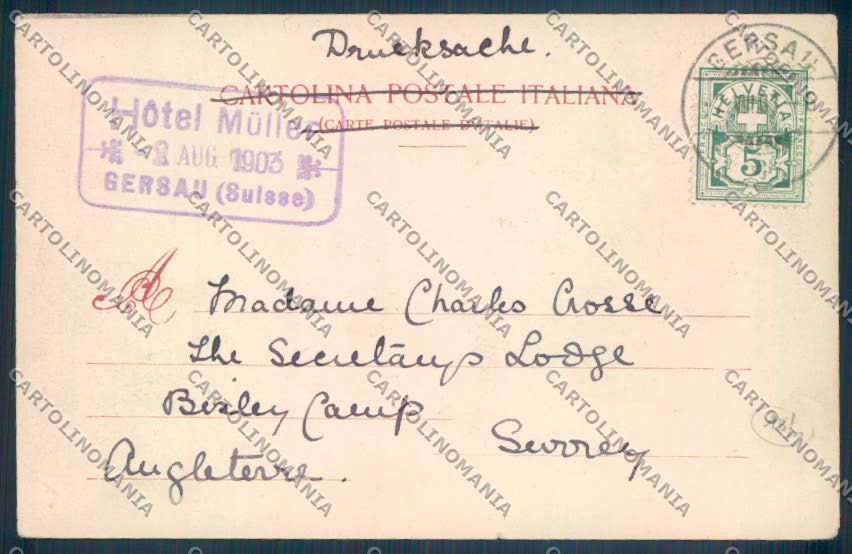 Drucksache.
CARTOLINA POSTALE ITALIANA
(CARTE POSTALE D'ITALIE)
Hôtel Müller
AUG 1903
GERSAU (Suisse)
GERSAU
HELVETIA
5
A Madame Charles Crosse
The Secretary's Lodge
Bisley Camp
Surrey
Angleterre.
CARTOLINOMANIA